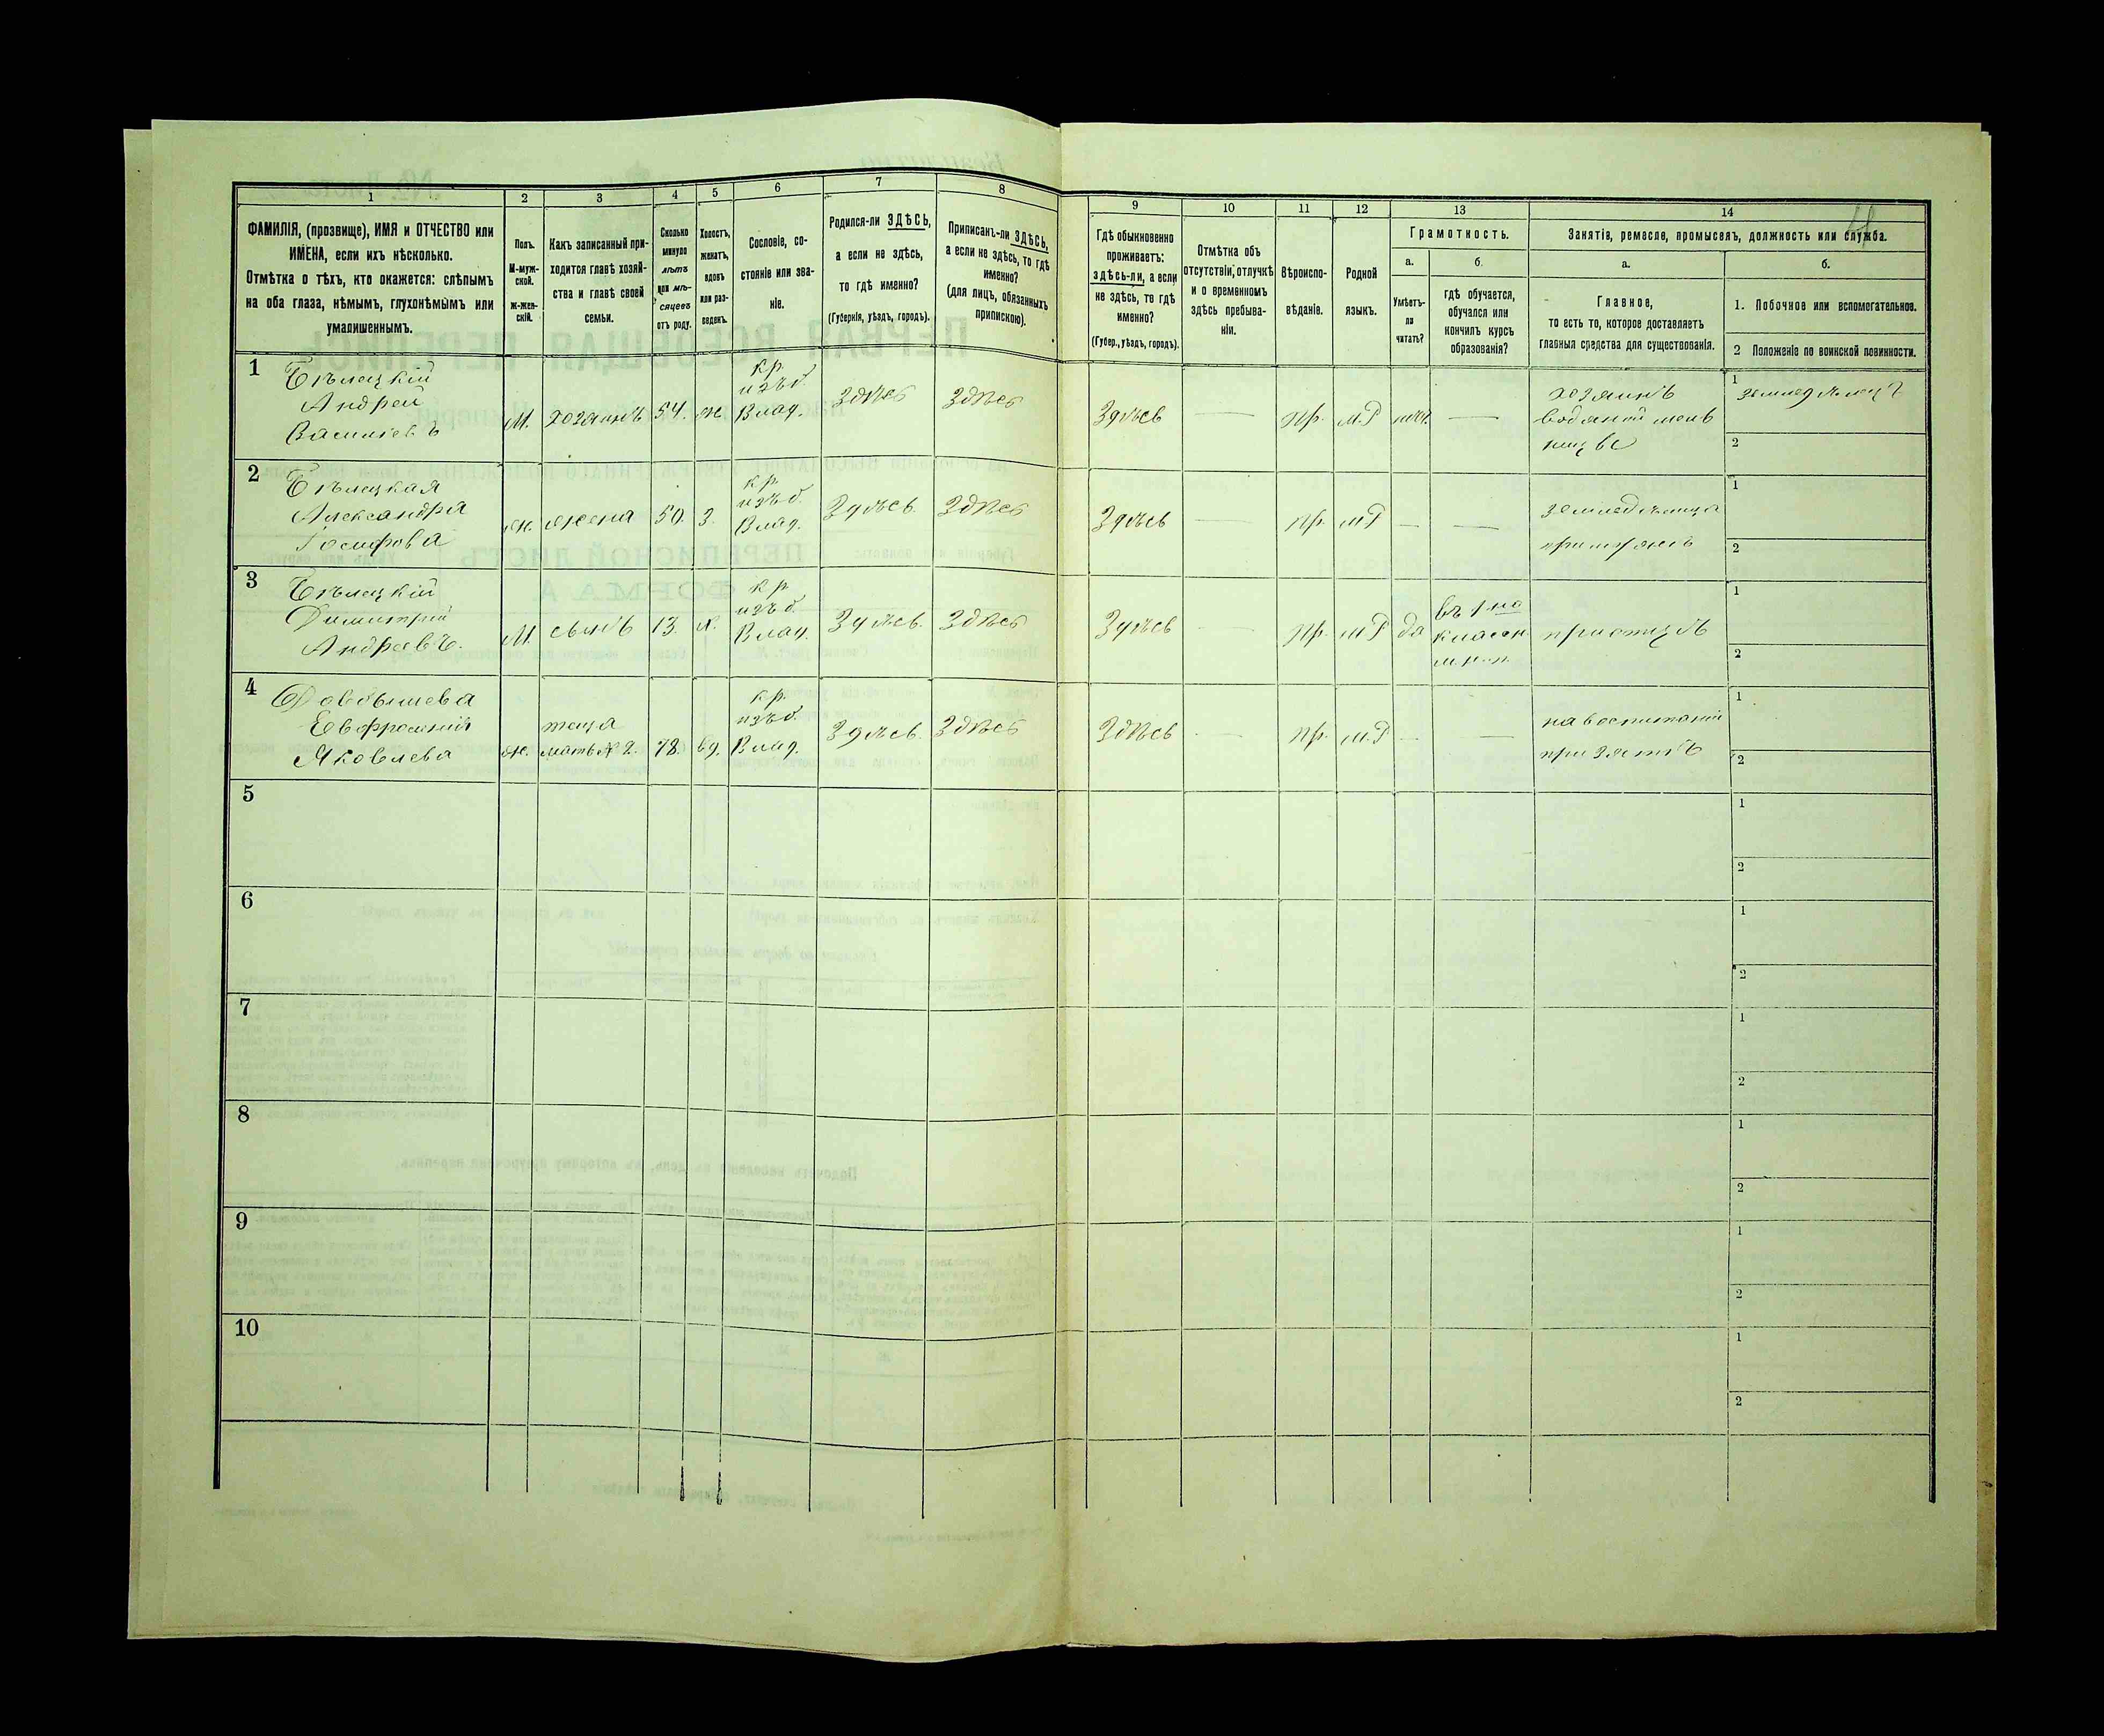 1
2
3
4
5
6
7
8
9
10
11
12
13
14
ФАМИЛІЯ, (прозвище), ИМЯ и ОТЧЕСТВО или
ИМЕНА, если ихъ нѣсколько.
Отмѣтка о тѣхъ, кто окажется: слѣпымъ
на оба глаза, нѣмымъ, глухонѣмымъ или
умалишеннымъ.
Полъ.
М-муж-
ской.
Ж-жен-
скій.
Какъ записанный при-
ходится главѣ хозяй-
ства и главѣ своей
семьи.
Сколько
минуло
лѣтъ
или мѣ-
сяцевъ
отъ роду.
Холостъ,
женатъ,
вдовъ
или раз-
веденъ.
Сословіе, со-
стояніе или зва-
ніе.
Родился-ли ЗДѢСЬ,
а если не здѣсь,
то гдѣ именно?
(Губернія, уѣздъ, городъ).
Приписанъ-ли ЗДѢСЬ,
а если не здѣсь, то гдѣ
именно?
(для лицъ, обязанныхъ
припискою).
Гдѣ обыкновенно
проживаетъ:
здѣсь-ли, а если
не здѣсь, то гдѣ
именно?
(Губер., уѣздъ, городъ).
Отмѣтка объ
отсутствіи, отлучкѣ
и о временномъ
здѣсь пребыва-
ніи.
Вѣроиспо-
вѣданіе.
Родной
языкъ.
Грамотность.
а.
Умѣетъ-
ли
читать?
б.
гдѣ обучается,
обучался или
кончилъ курсъ
образованія?
Занятія, ремесло, промыселъ, должность или служба.
а.
Главное,
то есть то, которое доставляетъ
главныя средства для существованія.
б.
1. Побочное или вспомогательное.
2 Положеніе по воинской повинности.
1
Бѣлецкій
Андрей
Васильевъ
М.
хозяинъ
54.
ж.
кр.
изъ б.
Влад.
Здѣсь
Здѣсь
Здѣсь
—
пр.
м.Р
—
хозяинъ
водяной мель
ницы
1
земледѣлецъ
2
2
Бѣлецкая
Александра
Іосифова
ж.
жена
50.
З.
кр.
изъ б.
Влад.
Здѣсь
Здѣсь
Здѣсь
—
пр.
мР
—
—
земледѣлица
при мужѣ
1
2
3
Бѣлецкій
Димитрій
Андреевъ.
М.
сынъ
13.
х.
кр.
изъ б.
Влад.
Здѣсь
Здѣсь
Здѣсь
—
пр.
мР
да
въ 1 но
классн.
м. н. п.
при отцѣ
1
2
4
Довбышева
Евфросинія
Яковлева
ж.
теща
мать № 2.
78.
вд.
кр.
изъ б.
Влад.
Здѣсь
Здѣсь
Здѣсь
—
пр.
м.Р
—
—
на воспитаніи
при зятѣ
1
2
5
1
2
6
1
2
7
1
2
8
1
2
9
1
2
10
1
2